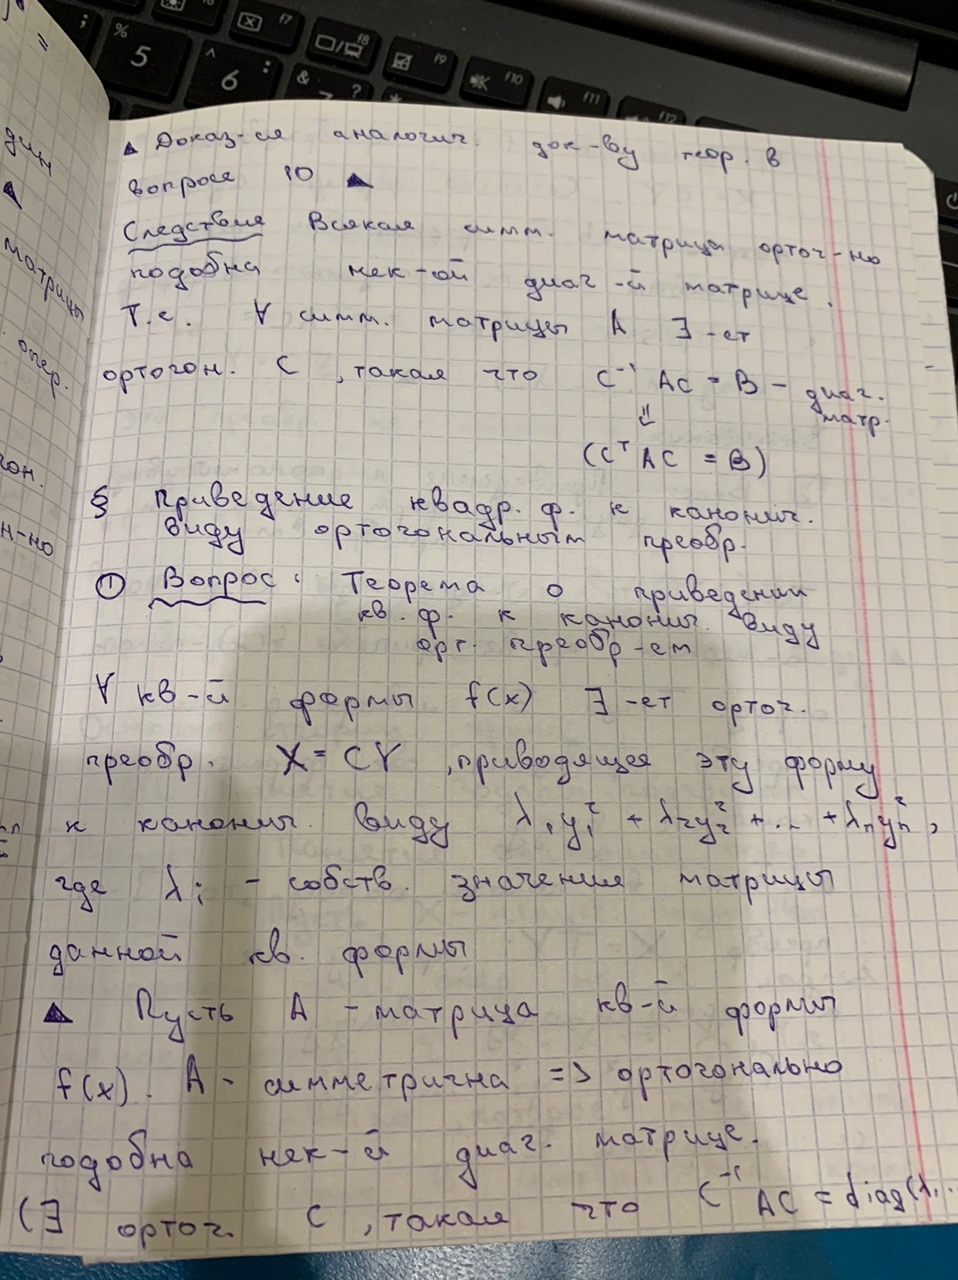 ▲ Доказ-ся аналогич. док-ву теор. в
вопросе 10 ▲
Следствие Всякая симм. матрица ортог-но
подобна нек-ой диаг-й матрице.
Т.е. ∀ симм. матрицы A ∃-ет
ортогон. C, такая что C⁻¹AC = B - диаг.
матр.
⇓
(CᵀAC = B)
§ Приведение квадр. ф. к канонич.
виду ортогональным преобр.
① Вопрос: Теорема о приведении
кв. ф. к канонич. виду
орт. преобр-ем
∀ кв-й формы f(x) ∃-ет ортог.
преобр. X = CY, приводящее эту форму
к канонич. виду λ₁y₁² + λ₂y₂² + ... + λₙyₙ²,
где λᵢ - собств. значения матрицы
данной кв. формы
▲ Пусть A - матрица кв-й формы
f(x). A - симметрична => ортогонально
подобна нек-й диаг. матрице.
(∃ ортог. C, такая что C⁻¹AC = diag(λ...